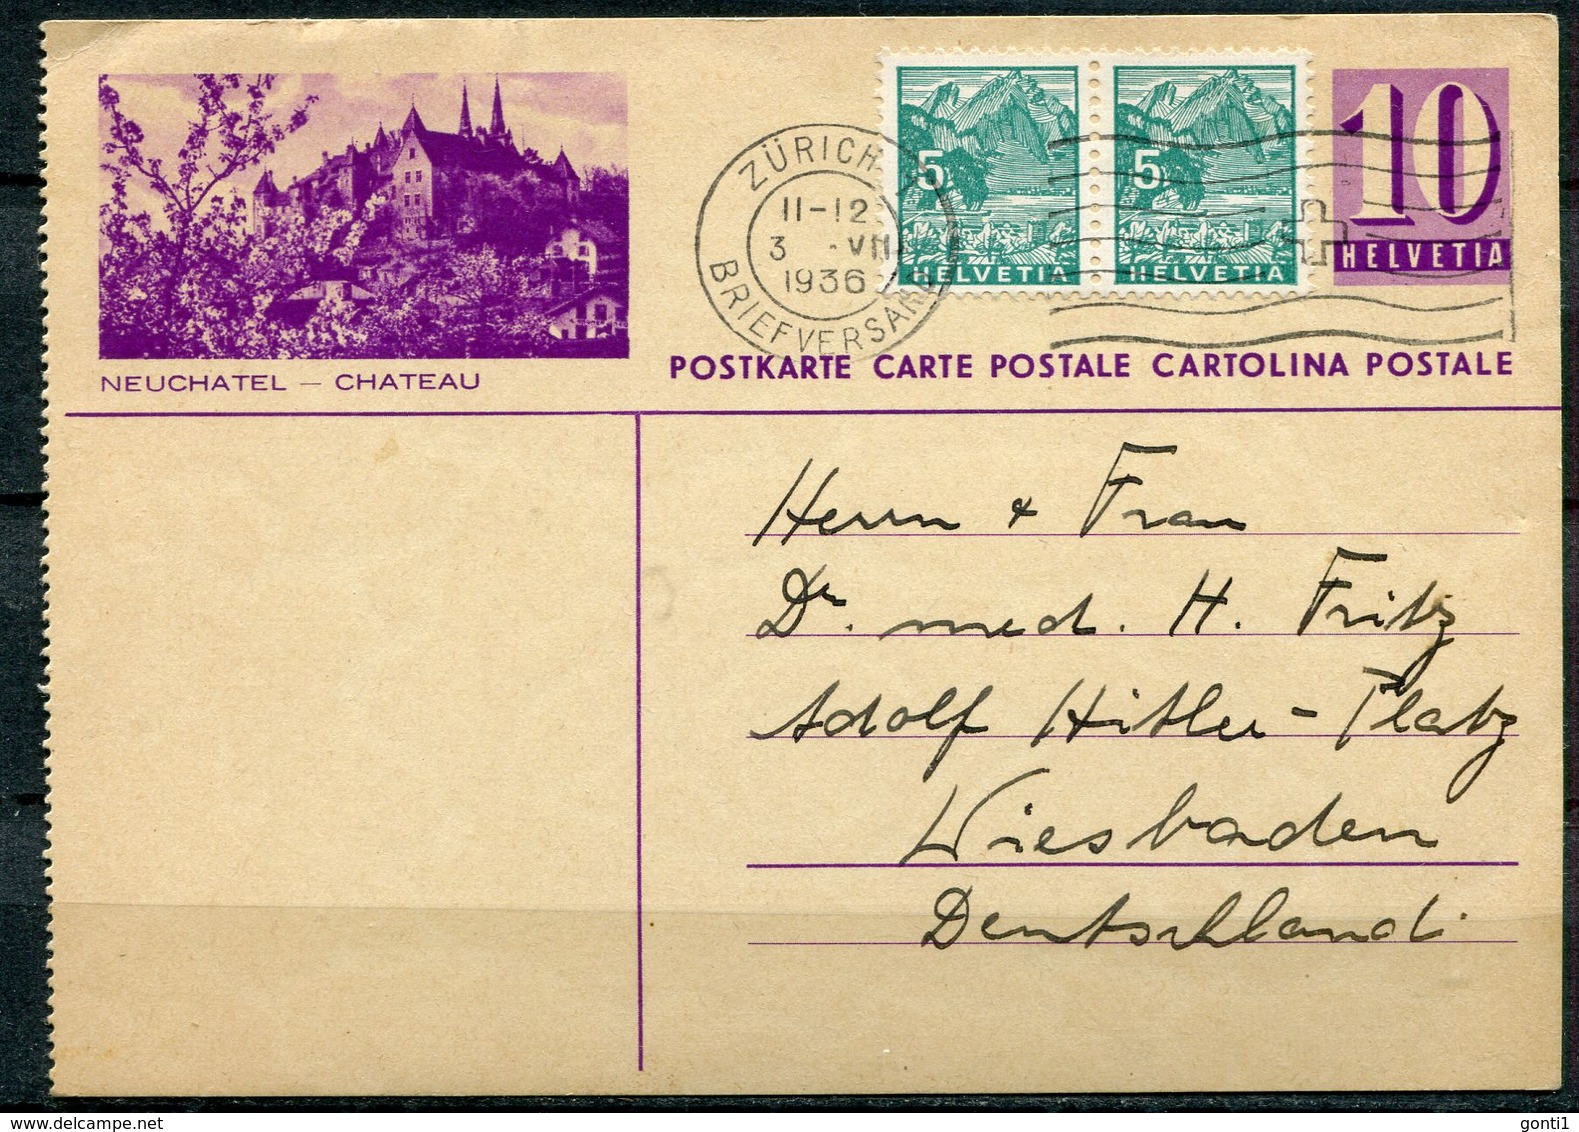 ZÜRICH
11-12
3 . VII
1936
BRIEFVERSAND
5
HELVETIA
5
HELVETIA
10
HELVETIA
NEUCHATEL – CHATEAU
POSTKARTE CARTE POSTALE CARTOLINA POSTALE
Herrn + Frau
Dr. med. H. Fritz
Adolf Hitler-Platz
Wiesbaden
Deutschland.
delcampe.net
gonti1